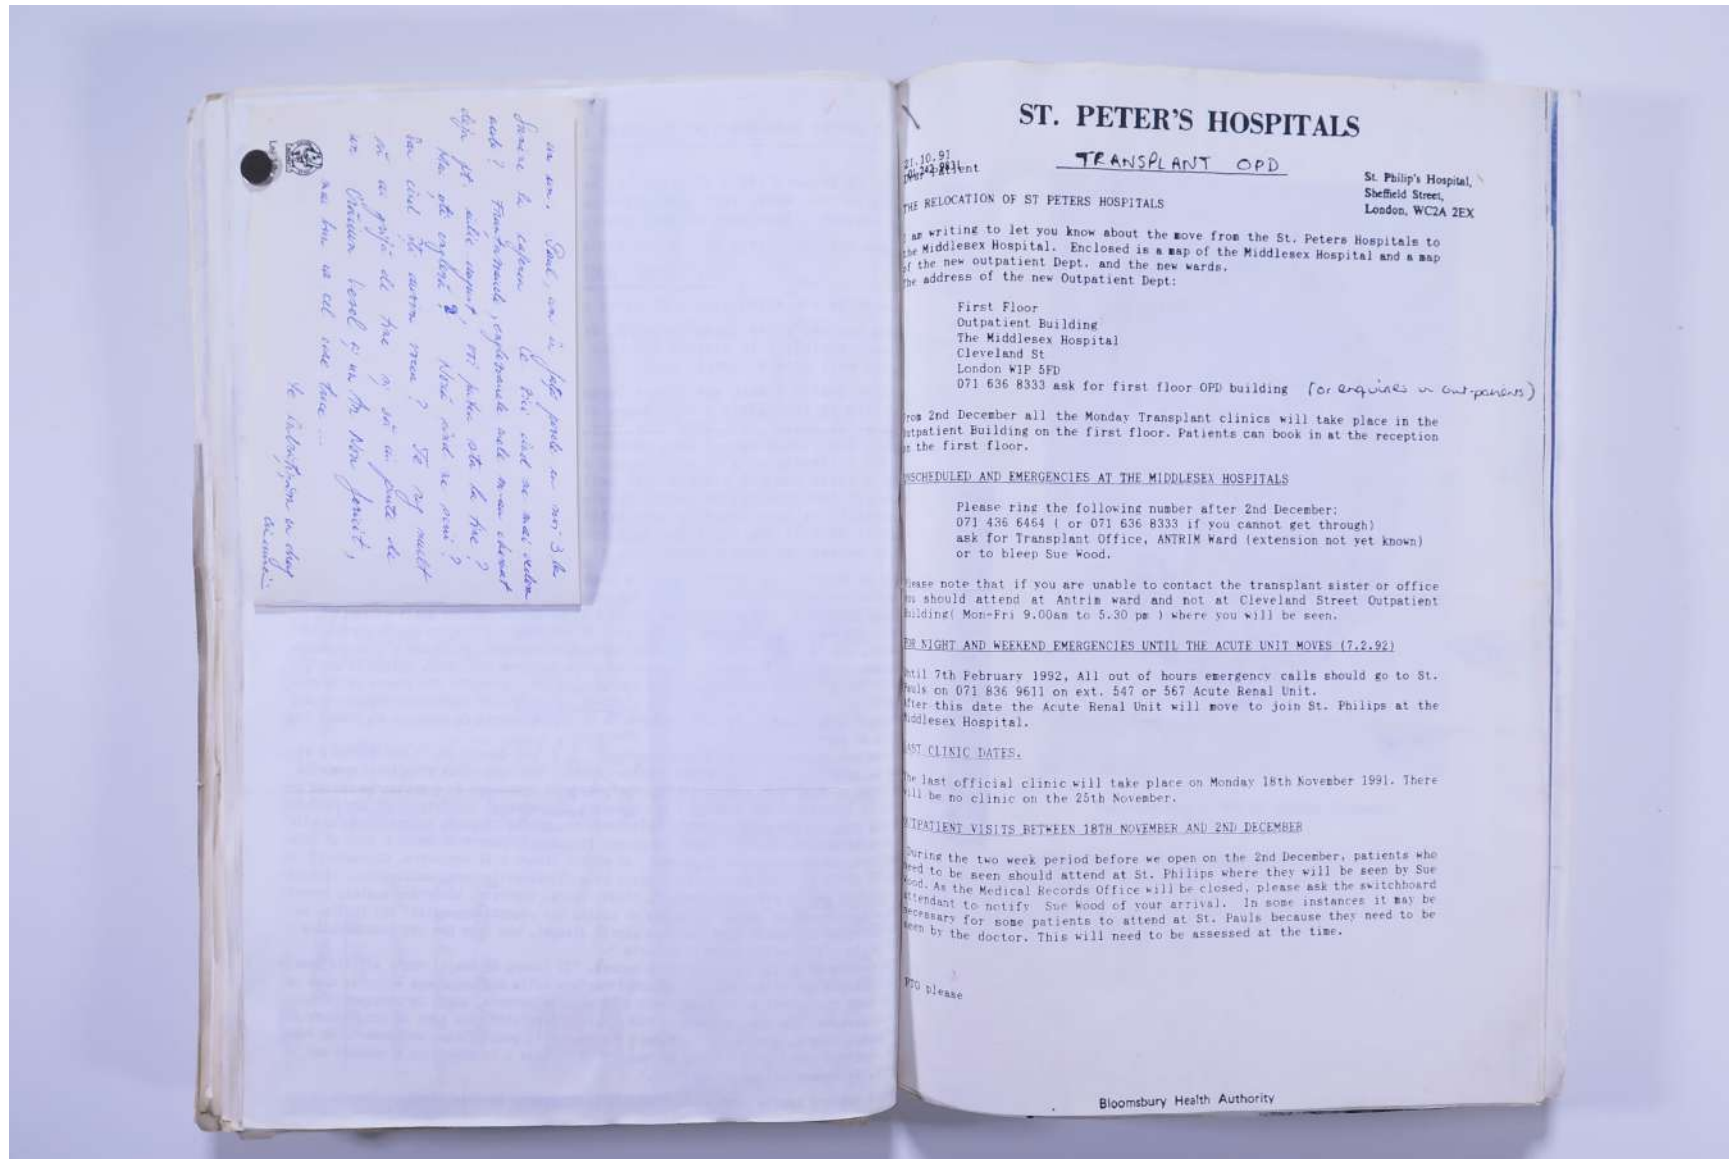 un an. Paul, un
la
cu noi 3 la
ce
când ne mai vedem
Franturile,
deja
sta la tine?
engleză? Nouă când ne scrii?
Dar când te avem
? Te rog mult
să ai grijă de tine și să
Crăciun vesel și un An Nou fericit,
mai bun ca cel care trece...
Te
cu drag
ST. PETER'S HOSPITALS
TRANSPLANT OPD
21.10.91
St. Philip's Hospital,
Sheffield Street,
London, WC2A 2EX
THE RELOCATION OF ST PETERS HOSPITALS
I am writing to let you know about the move from the St. Peters Hospitals to
the Middlesex Hospital. Enclosed is a map of the Middlesex Hospital and a map
of the new outpatient Dept. and the new wards.
the address of the new Outpatient Dept:
First Floor
Outpatient Building
The Middlesex Hospital
Cleveland St
London W1P 5FD
071 636 8333 ask for first floor OPD building (for enquiries in out-patients)
From 2nd December all the Monday Transplant clinics will take place in the
Outpatient Building on the first floor. Patients can book in at the reception
on the first floor.
UNSCHEDULED AND EMERGENCIES AT THE MIDDLESEX HOSPITALS
Please ring the following number after 2nd December:
071 436 6464 ( or 071 636 8333 if you cannot get through)
ask for Transplant Office, ANTRIM Ward (extension not yet known)
or to bleep Sue Wood.
Please note that if you are unable to contact the transplant sister or office
you should attend at Antrim ward and not at Cleveland Street Outpatient
Building( Mon-Fri 9.00am to 5.30 pm ) where you will be seen.
FOR NIGHT AND WEEKEND EMERGENCIES UNTIL THE ACUTE UNIT MOVES (7.2.92)
Until 7th February 1992, All out of hours emergency calls should go to St.
Pauls on 071 836 9611 on ext. 547 or 567 Acute Renal Unit.
After this date the Acute Renal Unit will move to join St. Philips at the
Middlesex Hospital.
LAST CLINIC DATES.
The last official clinic will take place on Monday 18th November 1991. There
will be no clinic on the 25th November.
OUTPATIENT VISITS BETWEEN 18TH NOVEMBER AND 2ND DECEMBER
During the two week period before we open on the 2nd December, patients who
need to be seen should attend at St. Philips where they will be seen by Sue
Wood. As the Medical Records Office will be closed, please ask the switchboard
attendant to notify Sue Wood of your arrival. In some instances it may be
necessary for some patients to attend at St. Pauls because they need to be
seen by the doctor. This will need to be assessed at the time.
PTO please
Bloomsbury Health Authority